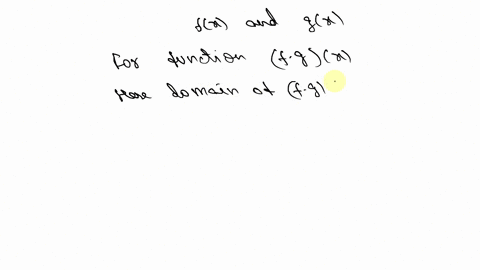 f(x) and g(x)
For function (f.g)(x)
Here domain of (f.g)